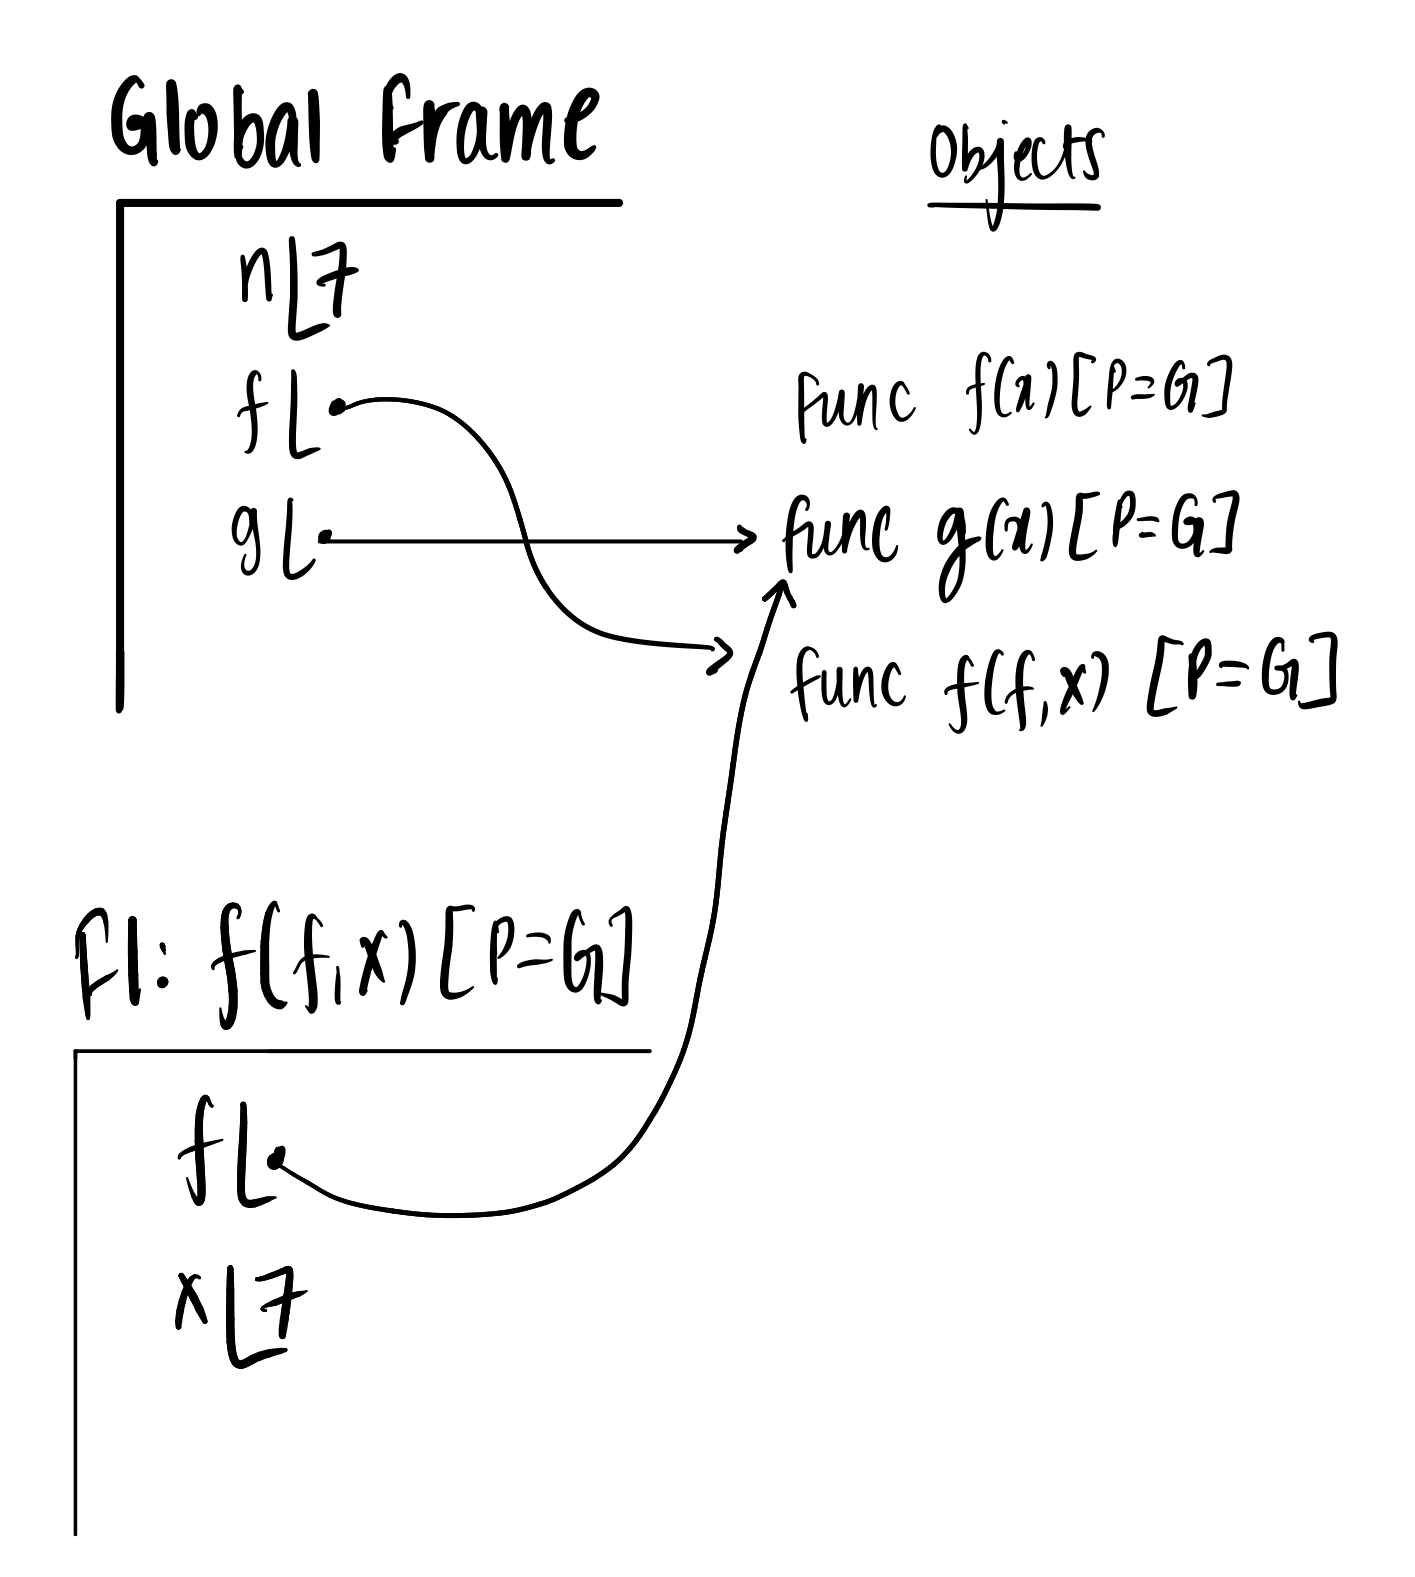 Global Frame
Objects
n 7
f
g
func f(x) [P=G]
func g(x) [P=G]
func f(f,x) [P=G]
F1: f(f,x) [P=G]
f
x 7